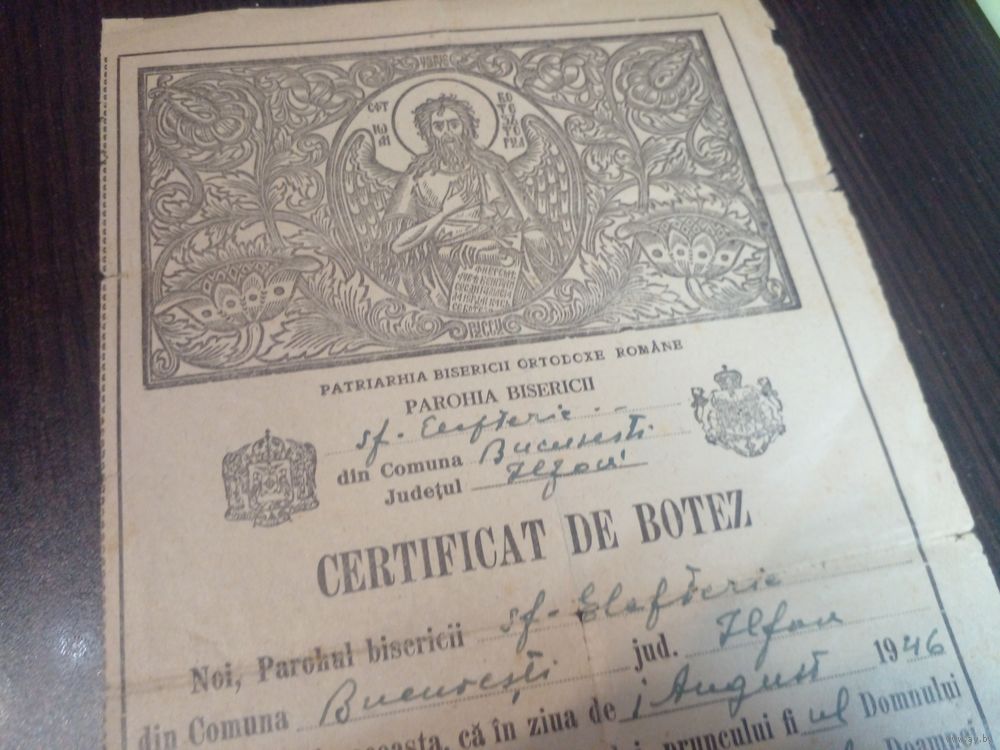 PATRIARHIA BISERICII ORTODOXE ROMÂNE
PAROHIA BISERICII
sf. Elefterie
din Comuna București
Județul Ilfov
CERTIFICAT DE BOTEZ
Noi, Parohul bisericii sf. Elefterie
din Comuna București jud. Ilfov
că în ziua de 1 August 1946
pruncului fiul Domnului